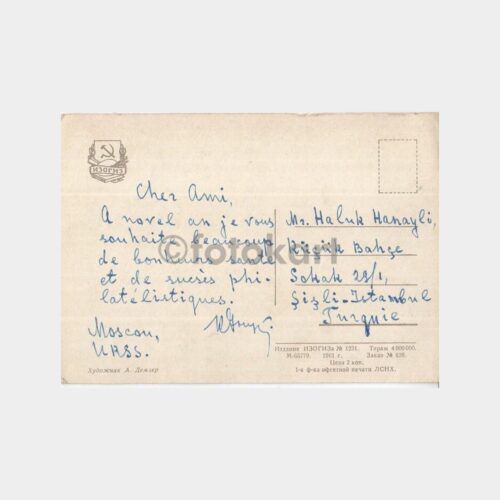 Cher Ami,
A novel an je vous
souhaite beaucoup
de bonheur, santé
et de succès phi-
latélistiques.
Moscou,
URSS.
Художник А. Демзер
Mr. Haluk Hanayli,
Küçük Bahçe
Sokak 23/1,
Şişli-Istanbul
Turquie
Издание ИЗОГИЗа № 1224. Тираж 4 000 000.
М-05779. 1961 г. Заказ № 620.
Цена 2 коп.
1-я ф-ка офсетной печати ЛСНХ.
©fotokart